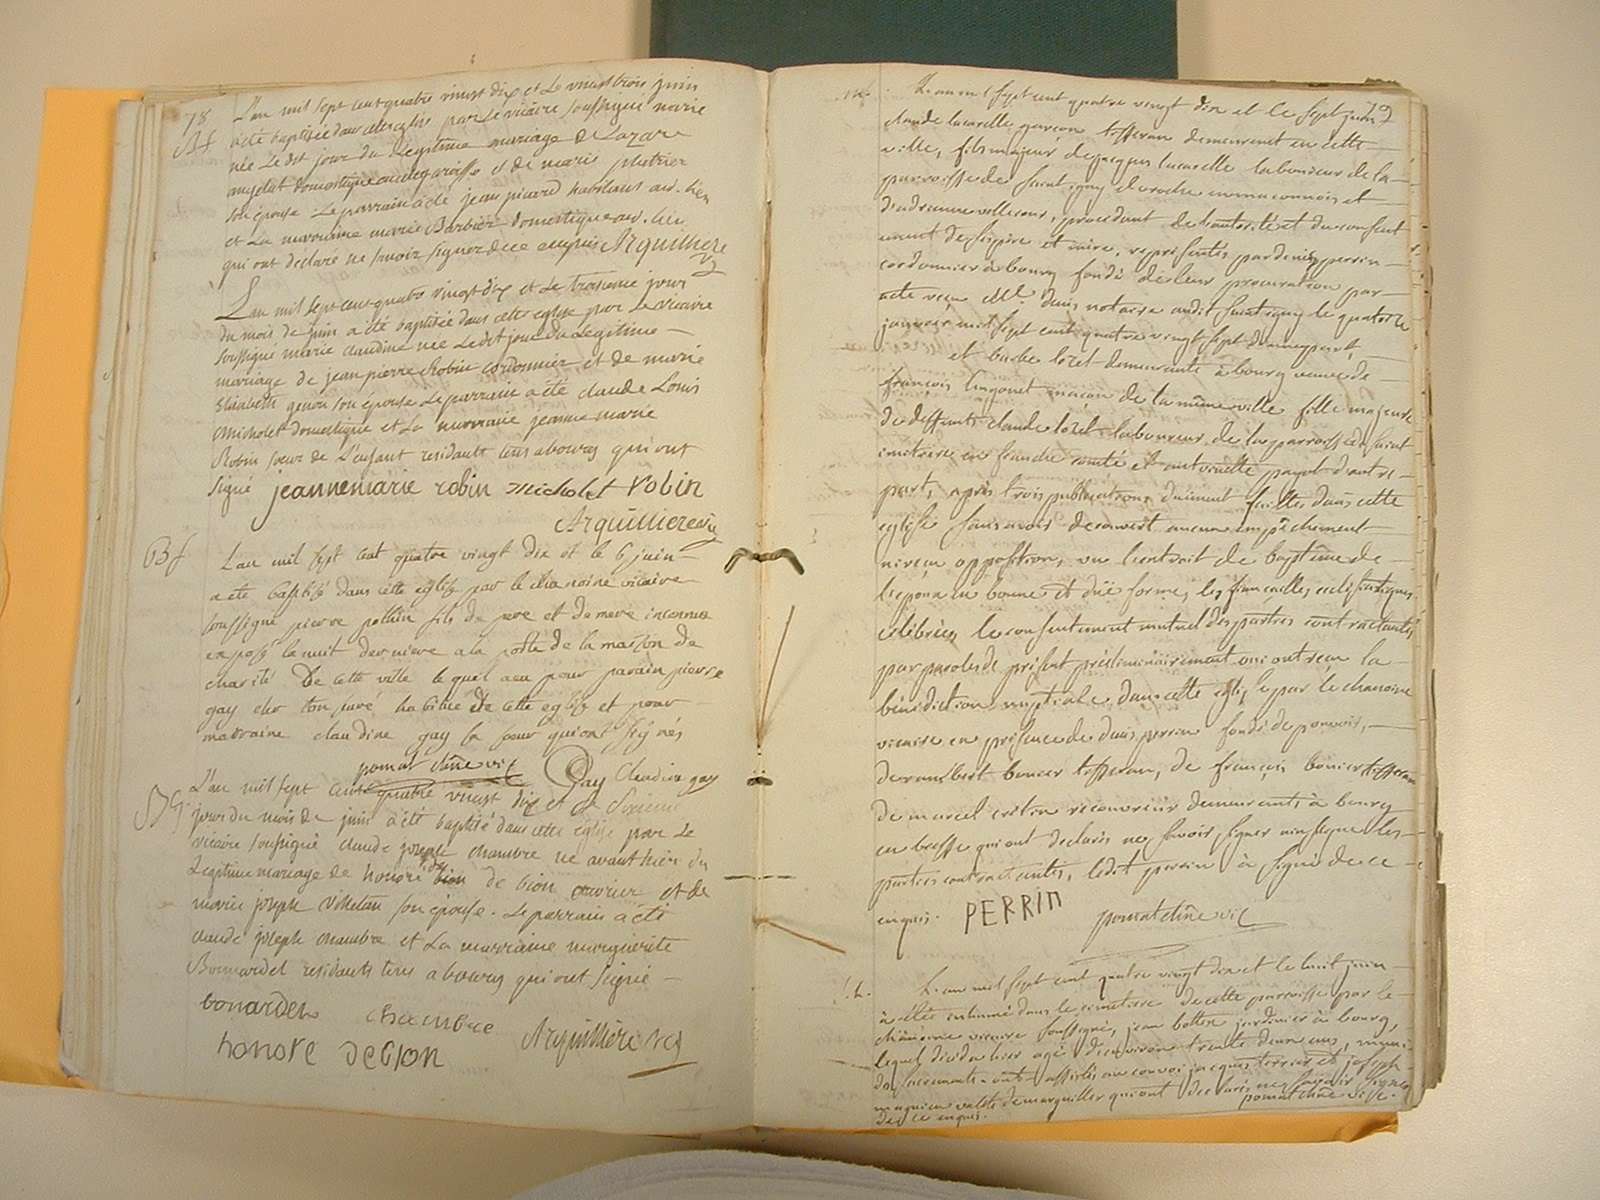 78
L'an mil sept cent quatre vingt dix et le vingt trois juin
a été baptisée dans cette eglise par le vicaire soussigné marie
née ledit jour du legitime mariage de Lazare
domestique en cette paroisse et de marie
son épouse. Le parrain a été jean picard aud. lieu
et La marraine marie Barbier domestique aud. lieu
qui ont déclaré ne savoir signer de ce enquis Arquilliere
vic
L'an mil sept cent quatre vingt dix et le troisieme jour
du mois de juin a été baptisée dans cette eglise par le vicaire
soussigné marie claudine née Ledit jour du Legitime
mariage de jean pierre Robin cordonnier et de marie
Elisabeth genou son épouse Le parrain a été claude Louis
Micholet domestique et La marraine jeanne marie
Robin soeur de L'enfant residants tous a bourg qui ont
signé jeanne marie robin micholet robin
Arquilliere vic
L'an mil sept cent quatre vingt dix et le 6 juin
a ete baptisé dans cette eglise par le chanoine vicaire
soussigné pierre fils de pere et de mere inconnus
exposé la nuit derniere a la porte de la maison de
charité De cette ville lequel a eu pour parain pierre
gay clerc tonsuré habitué de cette eglise et pour
marraine claudine gay sa soeur qui ont signés
pomat chne vic Gay Claudine gay
L'an mil sept cent quatre vingt dix et le sixieme
jour du mois de juin a été baptisé dans cette eglise par Le
vicaire soussigné claude joseph chambre né avant hier du
Legitime mariage de honoré de bion ouvrier et de
marie joseph son épouse. Le parrain a été
claude joseph chambre et La marraine marguerite
Bonnardel residants tous a bourg qui ont signé
bonardel chambre Arquilliere vic
honore De bion
79
L'an mil sept cent quatre vingt dix et le sept juin
claude lucarelle garçon tisseran demeurant en cette
ville, fils majeur de jacques lucarelle laboureur de la
parroisse de saint et
d'adrienne procedant de l'autorité et du consent
ement de ses pere et mere, représentés par denis perrin
cordonnier à bourg fondé de leur procuration par
acte reçu Me notaire audit le quatorze
janvier mil sept cent quatre vingt sept d'une part,
et barbe loret demeurante à bourg veuve de
françois maçon de la même ville fille majeure
de deffunts claude loret laboureur de la parroisse de saint
en franche comté et antoinette d'autre
part, après trois publications duement faittes dans cette
eglise sans avoir decouvert aucun empêchement
ni reçu opposition, vu l'extrait de baptême de
l'epoux en bonne et düe forme, les fiançailles ecclesiastiques
célébrées, le consentement mutuel des parties contractantes
par paroles de présent préliminairement oui ont reçu la
bénédiction nuptiale dans cette eglise par le chanoine
vicaire en présence de denis perrin fondé de pouvoir,
de rambert tisseran, de françois tisseran
de marcel demeurants à bourg
en bresse qui ont déclarés ne savoir signer ainsi que les
parties contractantes, ledit perrin à signé de ce
enquis. PERRIN pomat chne vic
L'an mil sept cent quatre vingt dix et le huit juin
à étté inhumé dans le cimetiere de cette parroisse par le
chanoine vicaire soussigné, jean jardinier à bourg,
lequel décéda hier agé d'environ trente deux ans, muni
des sacrements. ont assistés au convoi jacques et joseph
valets de marguiller qui ont déclarés ne savoir signer
de ce enquis. pomat chne vic